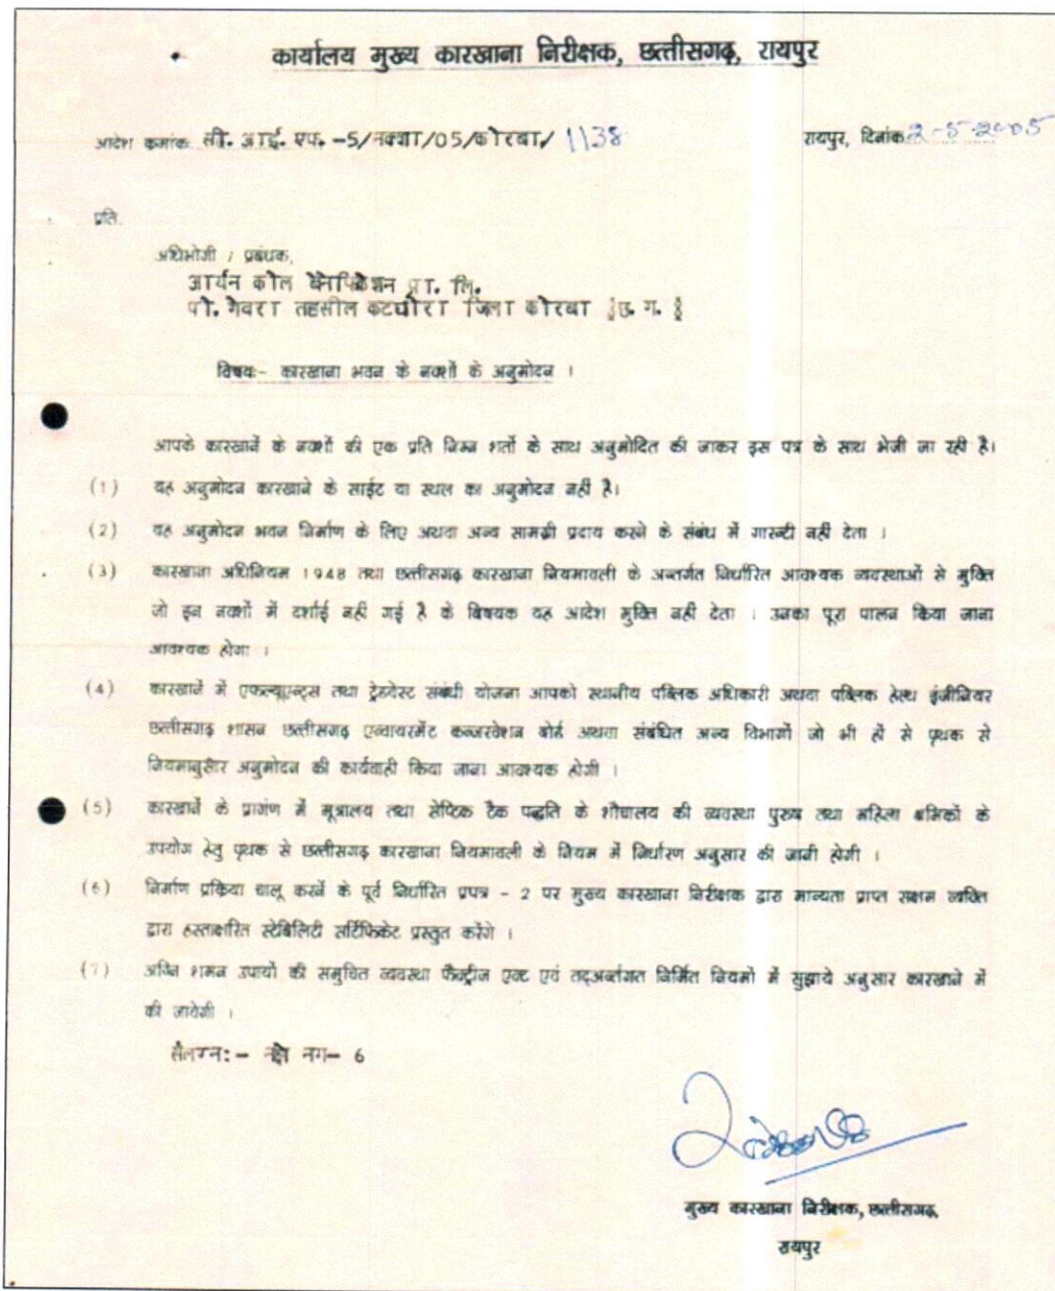 कार्यालय मुख्य कारखाना निरीक्षक, छत्तीसगढ़, रायपुर
आदेश कमांक सी. आई. एफ. -5/नक्शा/05/कोरबा/ 1138 रायपुर, दिनांक 2-5-2005
प्रति,
अधिभोगी / प्रबंधक,
आर्यन कोल बेनीफिकेशन प्रा. लि.
पो. गेवरा तहसील कटघोरा जिला कोरबा छ. ग.
विषयः- कारखाना भवन के नक्शों के अनुमोदन ।
आपके कारखानें के नक्शों की एक प्रति निम्न शर्तो के साथ अनुमोदित की जाकर इस पत्र के साथ भेजी जा रही है।
(1) यह अनुमोदन कारखाने के साईट या स्थल का अनुमोदन नहीं है।
(2) यह अनुमोदन भवन निर्माण के लिए अथवा अन्य सामग्री प्रदाय करने के संबंध में गारन्टी नही देता ।
(3) कारखाना अधिनियम 1948 तथा छत्तीसगढ़ कारखाना नियमावली के अन्तर्गत निर्धारित आवश्यक व्यवस्थाओं से मुक्ति
जो इन नक्शों में दर्शाई नहीं गई है के विषयक यह आदेश मुक्ति नही देता । उनका पूरा पालन किया जाना
आवश्यक होगा ।
(4) कारखानें में एफल्यूएन्ट्स तथा ट्रेडवेस्ट संबंधी योजना आपको स्थानीय पब्लिक अधिकारी अथवा पब्लिक हेल्थ इंजीनियर
छत्तीसगढ़ शासन छत्तीसगढ़ एन्वायरमेंट कन्जरवेशन बोर्ड अथवा संबंधित अन्य विभागों जो भी हों से पृथक से
नियमानुसार अनुमोदन की कार्यवाही किया जाना आवश्यक होगी ।
(5) कारखानें के प्रागंण में मूत्रालय तथा सेप्टिक टैक पद्धति के शौचालय की व्यवस्था पुरूष तथा महिला श्रमिकों के
उपयोग हेतु पृथक से छत्तीसगढ़ कारखाना नियमावली के नियम में निर्धारण अनुसार की जानी होगी ।
(6) निर्माण प्रक्रिया चालू करनें के पूर्व निर्धारित प्रपत्र - 2 पर मुख्य कारखाना निरीक्षक द्वारा मान्यता प्राप्त सक्षम व्यक्ति
द्वारा हस्ताक्षरित स्टेबिलिटी सर्टिफिकेट प्रस्तुत करेंगे ।
(7) अग्नि शमन उपायों की समुचित व्यवस्था फैक्ट्रीज एक्ट एवं तद्अर्न्तगत निर्मित नियमों में सुझाये अनुसार कारखाने में
की जायेगी ।
सॅलग्न:- नक्शे नग- 6
मुख्य कारखाना निरीक्षक, छत्तीसगढ़,
रायपुर